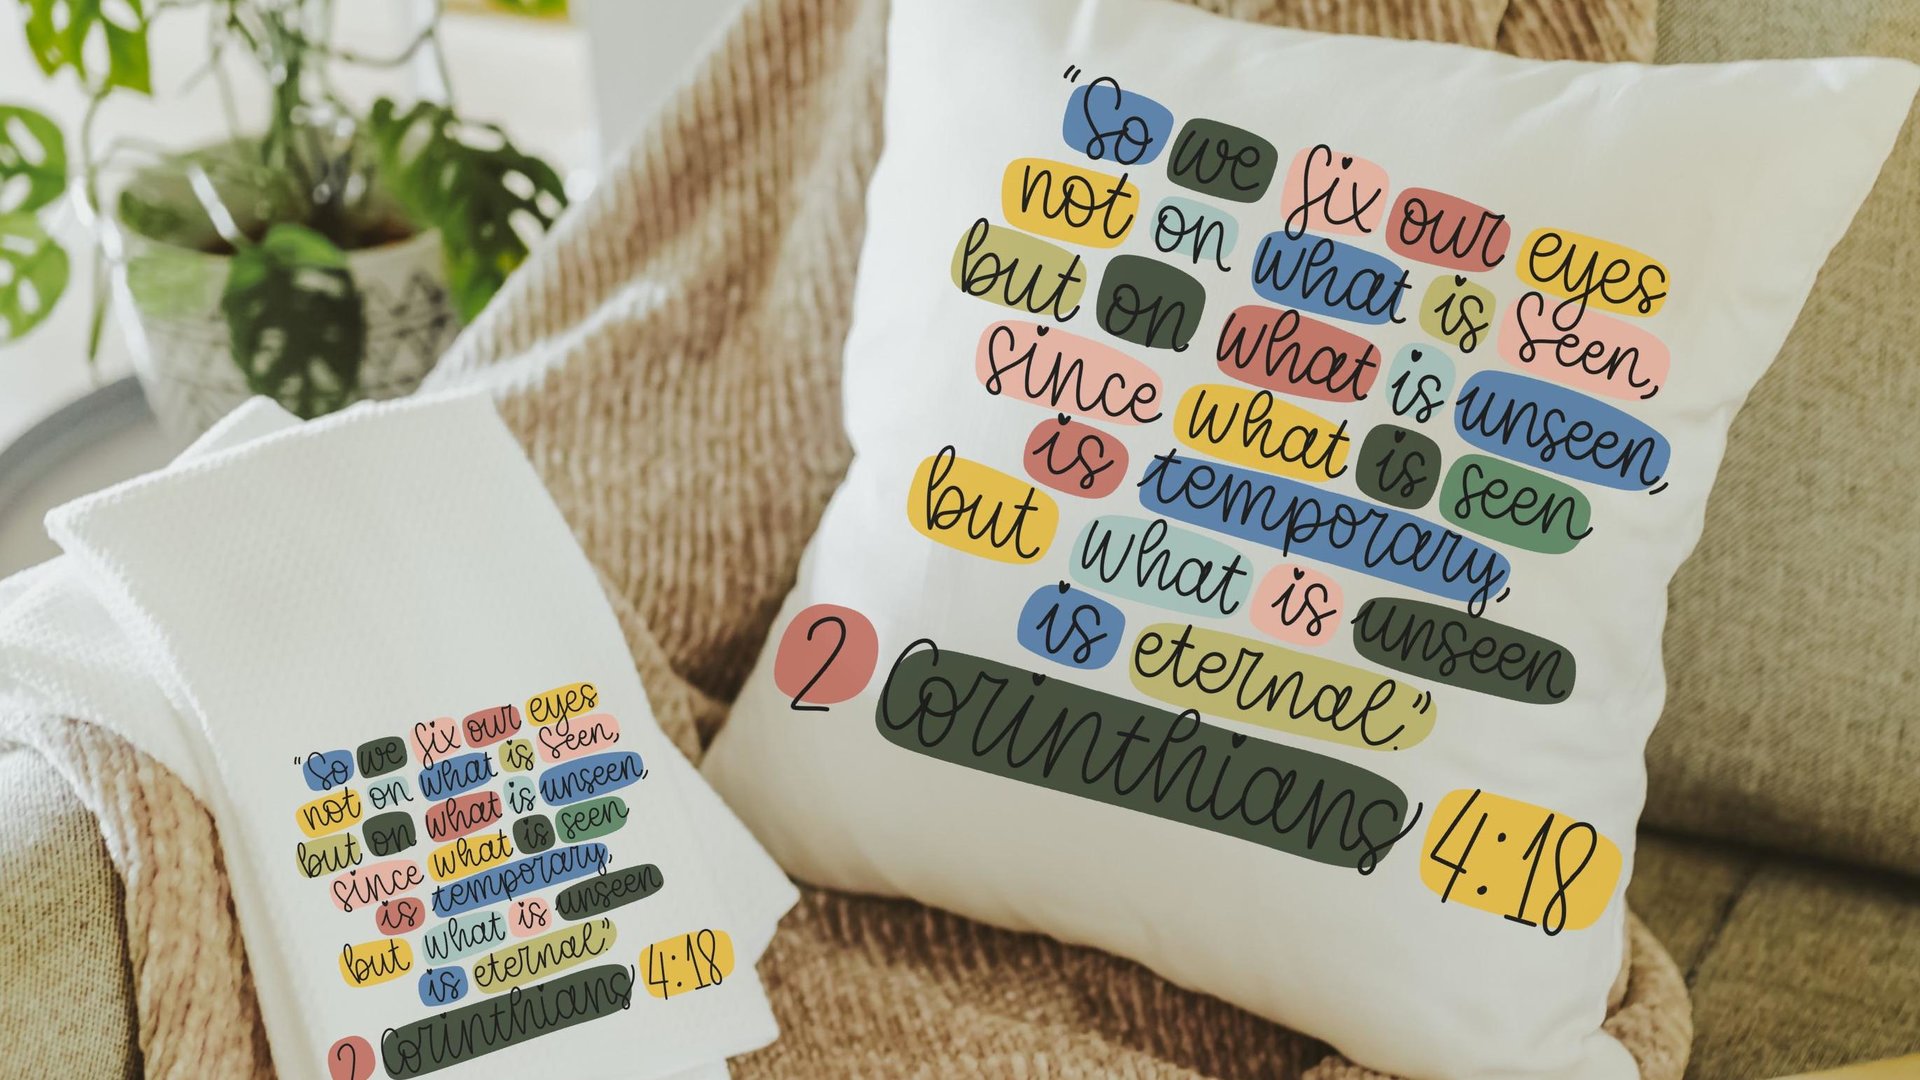 "So we fix our eyes
not on what is seen,
but on what is unseen,
since what is seen
is temporary,
but what is unseen
is eternal."
2 Corinthians 4:18
"So we fix our eyes
not on what is seen,
but on what is unseen,
since what is seen
is temporary,
but what is unseen
is eternal."
2 Corinthians 4:18